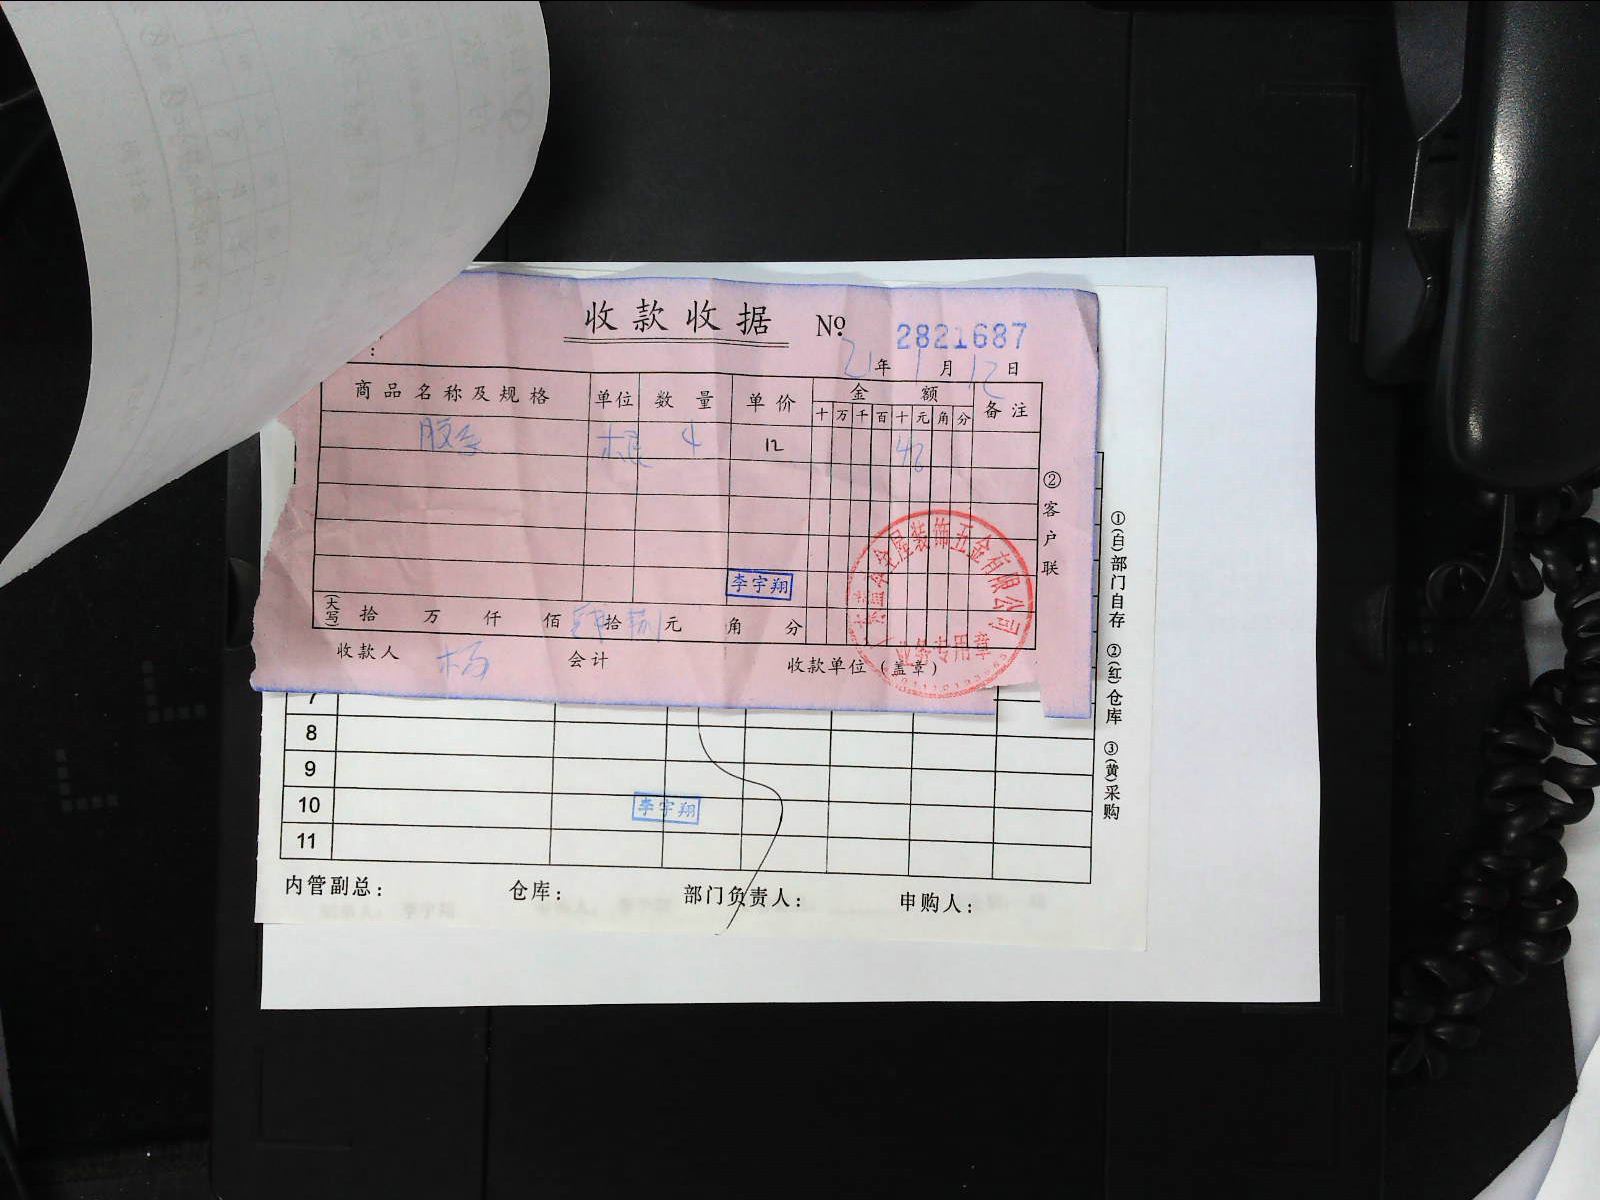 收款收据 № 2821687
21年 1月 12日
商品名称及规格 单位 数量 单价 金额 备注
十 万 千 百 十 元 角 分
根 4 12 48
李宇翔
(大写) 拾 万 仟 佰 肆拾 捌元 角 分
收款人 杨 会计 收款单位（盖章）
②客户联
全屋装饰五金有限公司
业务专用章
7
8
9
10 李宇翔
11
内管副总： 仓库： 部门负责人： 申购人：
①(白)部门自存 ②(红)仓库 ③(黄)采购